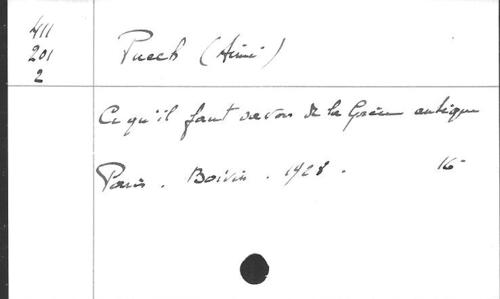 411
201
2
Puech (Aimé)
Ce qu'il faut savoir de la Grèce antique
Paris. Boivin. 1928. 16-